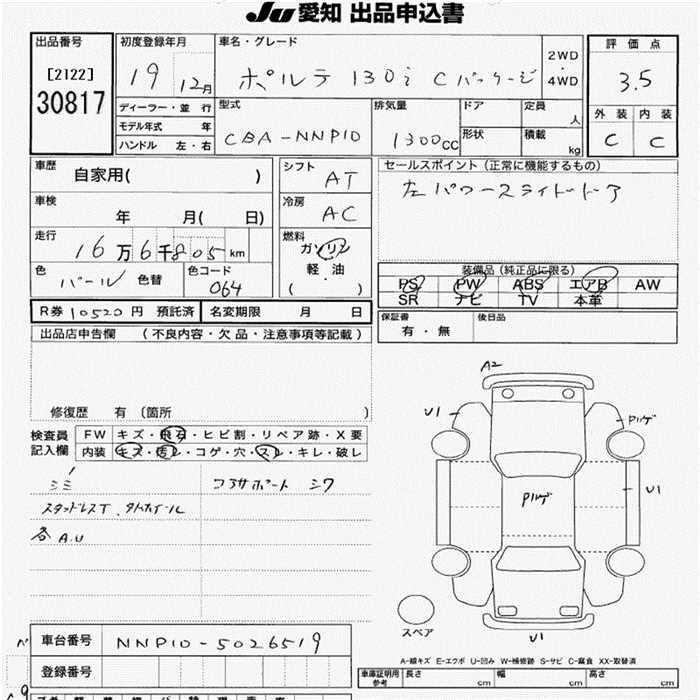 JU 愛知 出品申込書
出品番号
[2122]
30817
初度登録年月
19 12月
車名・グレード
ポルテ 130i Cパッケージ
2WD
・
4WD
評価点
3.5
外装 内装
C C
ディーラー・並行
モデル年式 年
ハンドル 左・右
型式
CBA-NNP10
排気量
1300CC
ドア
形状
定員 人
積載 kg
車歴
自家用( )
車検
年 月( 日)
走行
16万6千805km
色
パール 色替
色コード
064
シフト
AT
冷房
AC
燃料
ガソリン
軽・油
( )
セールスポイント(正常に機能するもの)
左パワースライドドア
装備品(純正品に限る)
PS PW ABS エアB AW
SR ナビ TV 本革
R券 10520円 預託済 名変期限 月 日
保証書
有・無
後日品
出品店申告欄 (不良内容・欠品・注意事項等記載)
修復歴 有 (箇所 )
検査員
記入欄
FW キズ・飛石・ヒビ割・リペア跡・X要
内装 キズ・汚レ・コゲ・穴・スレ・キレ・破レ
シミ コアサポート シワ
スタッドレスT、タイヤホイール
各A.U
A2
U1
Pルゲ
Pルゲ
U1
U1
スペア
車台番号 NNP10-5026519
登録番号
A-線キズ E-エクボ U-凹み W-補修跡 S-サビ C-腐食 XX-取替済
車庫証明用
参考
長さ cm 幅 cm 高さ cm